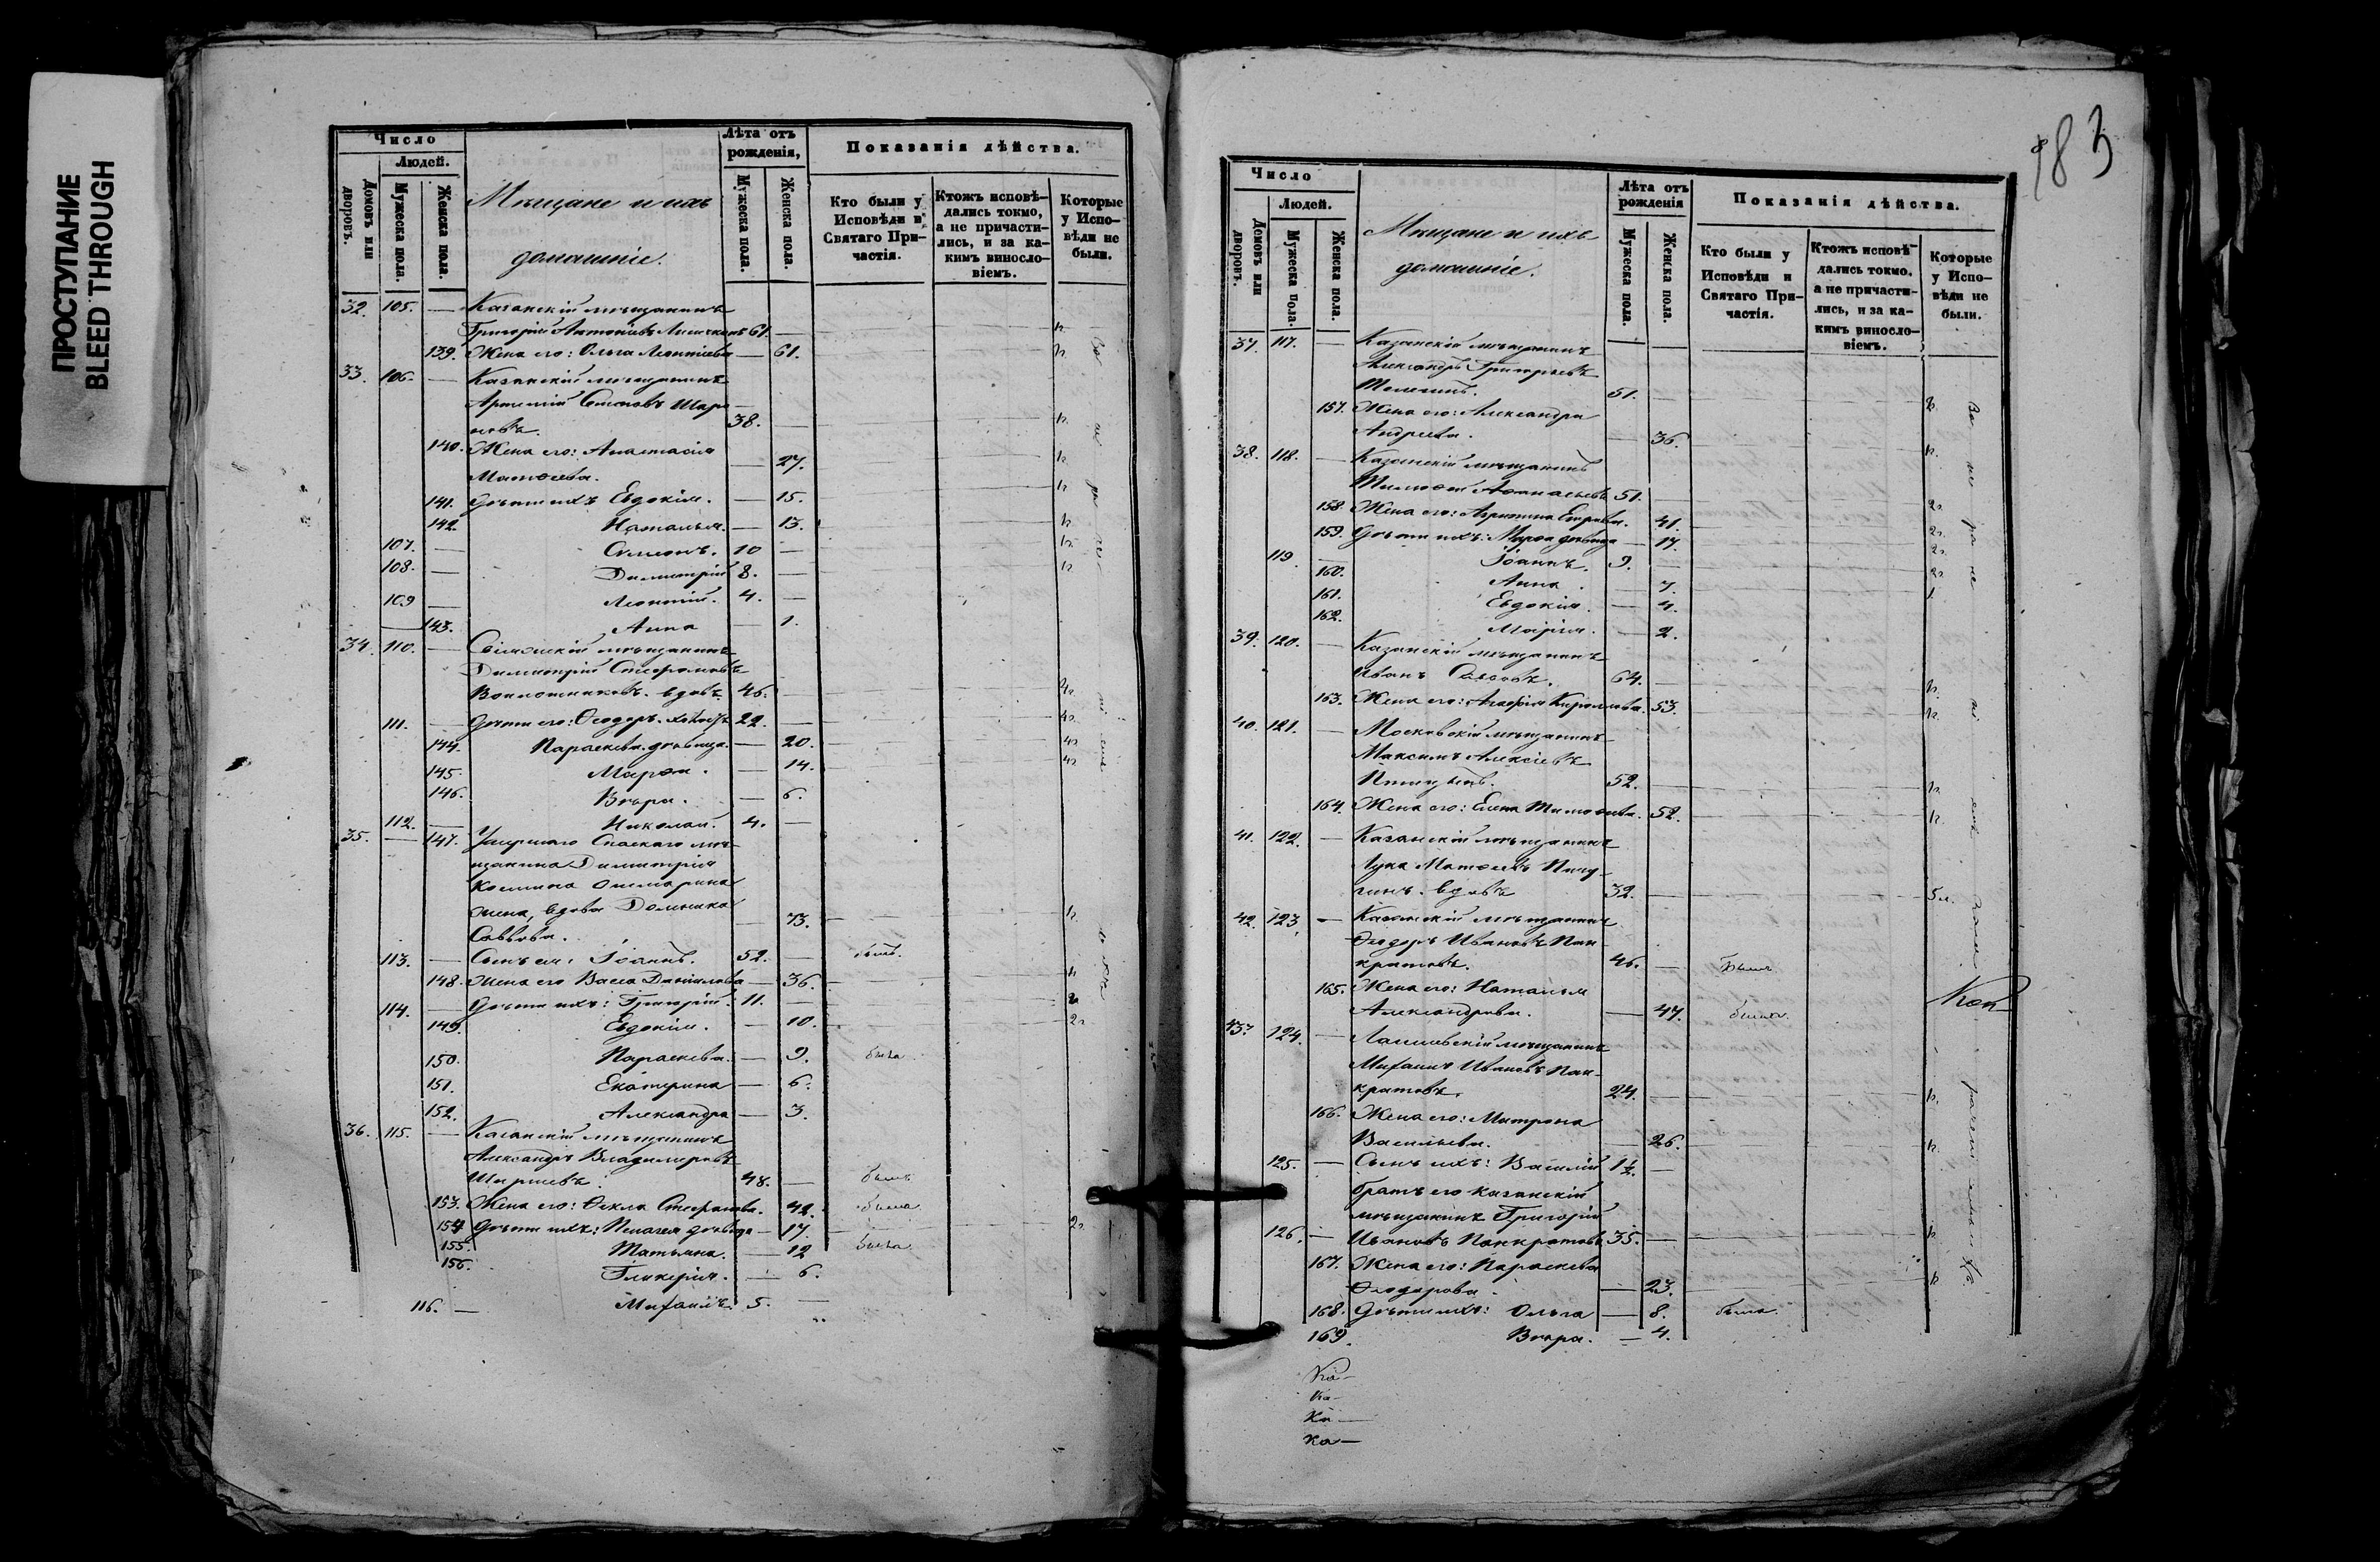 ПРОСТУПАНИЕ
BLEED THROUGH
Число
Людей.
Домовъ или дворовъ.
Мужеска пола.
Женска пола.
Мѣщане и ихъ
домашніе.
Лѣта отъ
рожденія,
Мужеска пола.
Женска пола.
Показанія дѣйства.
Кто были у
Исповѣди и
Святаго При-
частія.
Ктожъ исповѣ-
дались токмо,
а не причасти-
лись, и за ка-
кимъ винosло-
віемъ.
Которые
у Испо-
вѣди не
были.
32. 105. — Казанскій мѣщанинъ
Григорій Антоновъ 61. —
139. Жена его: Ольга Леонтіева — 61.
33. 106. — Казанскій мѣщанинъ
Артемій Степановъ Шаро-
новъ. 38. —
140. Жена его: Анастасія
Матѳеева. — 27.
141. Дѣти ихъ: Евдокія. — 15.
142. Наталья. — 13.
107. — Симеонъ. 10 —
108. — Димитрій 8. —
109 — Леонтій. 4. —
143. Анна — 1.
34. 110. — мѣщанинъ
Димитрій Стефановъ
вдовъ. 46. —
111. — Дѣти его: Ѳеодоръ. холостъ 22. —
144. Параскева. дѣвица. — 20.
145. Марѳа. — 14.
146. Вѣра. — 6.
112. — Николай. 4. —
35. — 147. Умершаго Спаскаго мѣ-
щанина Димитрія
Козмина
жена, вдова Домника
Саввова. — 73.
113. — Сынъ ея: Іоаннъ. 52. — былъ.
148. Жена его Васса Данилова — 36.
114. — Дѣти ихъ: Григорій. 11. —
149. Евдокія. — 10.
150. Параскева. — 9. была
151. Екатерина — 6.
152. Александра — 3.
36. 115. — Казанскій мѣщанинъ
Александръ Владимировъ
Ширяевъ. 48. — былъ
153. Жена его: Ѳекла Стефанова. — 42. была
154 Дѣти ихъ: Пелагея дѣвица — 17.
155. Татьяна. — 12 была
156. Гликерія. — 6.
116. — Михаилъ. 5. —
183
Число
Людей.
Домовъ или дворовъ.
Мужеска пола.
Женска пола.
Мѣщане и ихъ
домашніе.
Лѣта отъ
рожденія
Мужеска пола.
Женска пола.
Показанія дѣйства.
Кто были у
Исповѣди и
Святаго При-
частія.
Ктожъ исповѣ-
дались токмо,
а не причасти-
лись, и за ка-
кимъ винosло-
віемъ.
Которые
у Испо-
вѣди не
были.
37. 117. — Казанскій мѣщанинъ
Александръ Григорьевъ
51. —
157. Жена его: Александра
Андреева. — 36.
38. 118. — Казанскій мѣщанинъ
Тимоѳей Аѳанасьевъ 51. —
158. Жена его: Агрипина Егорова. — 41.
159. Дѣти ихъ: Марѳа дѣвица — 17.
119 — Іоаннъ. 9. —
160. Анна — 7.
161. Евдокія. — 4.
162. Марія. — 2.
39. 120. — Казанскій мѣщанинъ
Иванъ 64. —
163. Жена его: Агафія Кирилова. — 53.
40. 121. — Московскій мѣщанинъ
Максимъ Алексіевъ
Птицынъ. 52. —
164. Жена его: Елена Тимоѳеева. — 52.
41. 122. — Казанскій мѣщанинъ
Лука Матѳеевъ Пичу-
гинъ. вдовъ 32. —
42. 123. — Казанскій мѣщанинъ
Ѳеодоръ Ивановъ Пан-
кратовъ. 46. — былъ
165. Жена его: Наталья
Александрова. — 47. была.
43. 124. — Лаишевскій мѣщанинъ
Михаилъ Ивановъ Пан-
кратовъ. 24. —
166. Жена его: Матрона
Васильева. — 26.
125. — Сынъ ихъ: Василій 1½ —
братъ его казанскій
мѣщанинъ Григорій
126. — Ивановъ Панкратовъ 35. —
167. Жена его: Параскева
Ѳеодорова. — 23.
168. Дѣти ихъ: Ольга — 8. была.
169. Вѣра. — 4.
Ка-
Ка-
Ка-
Ка-